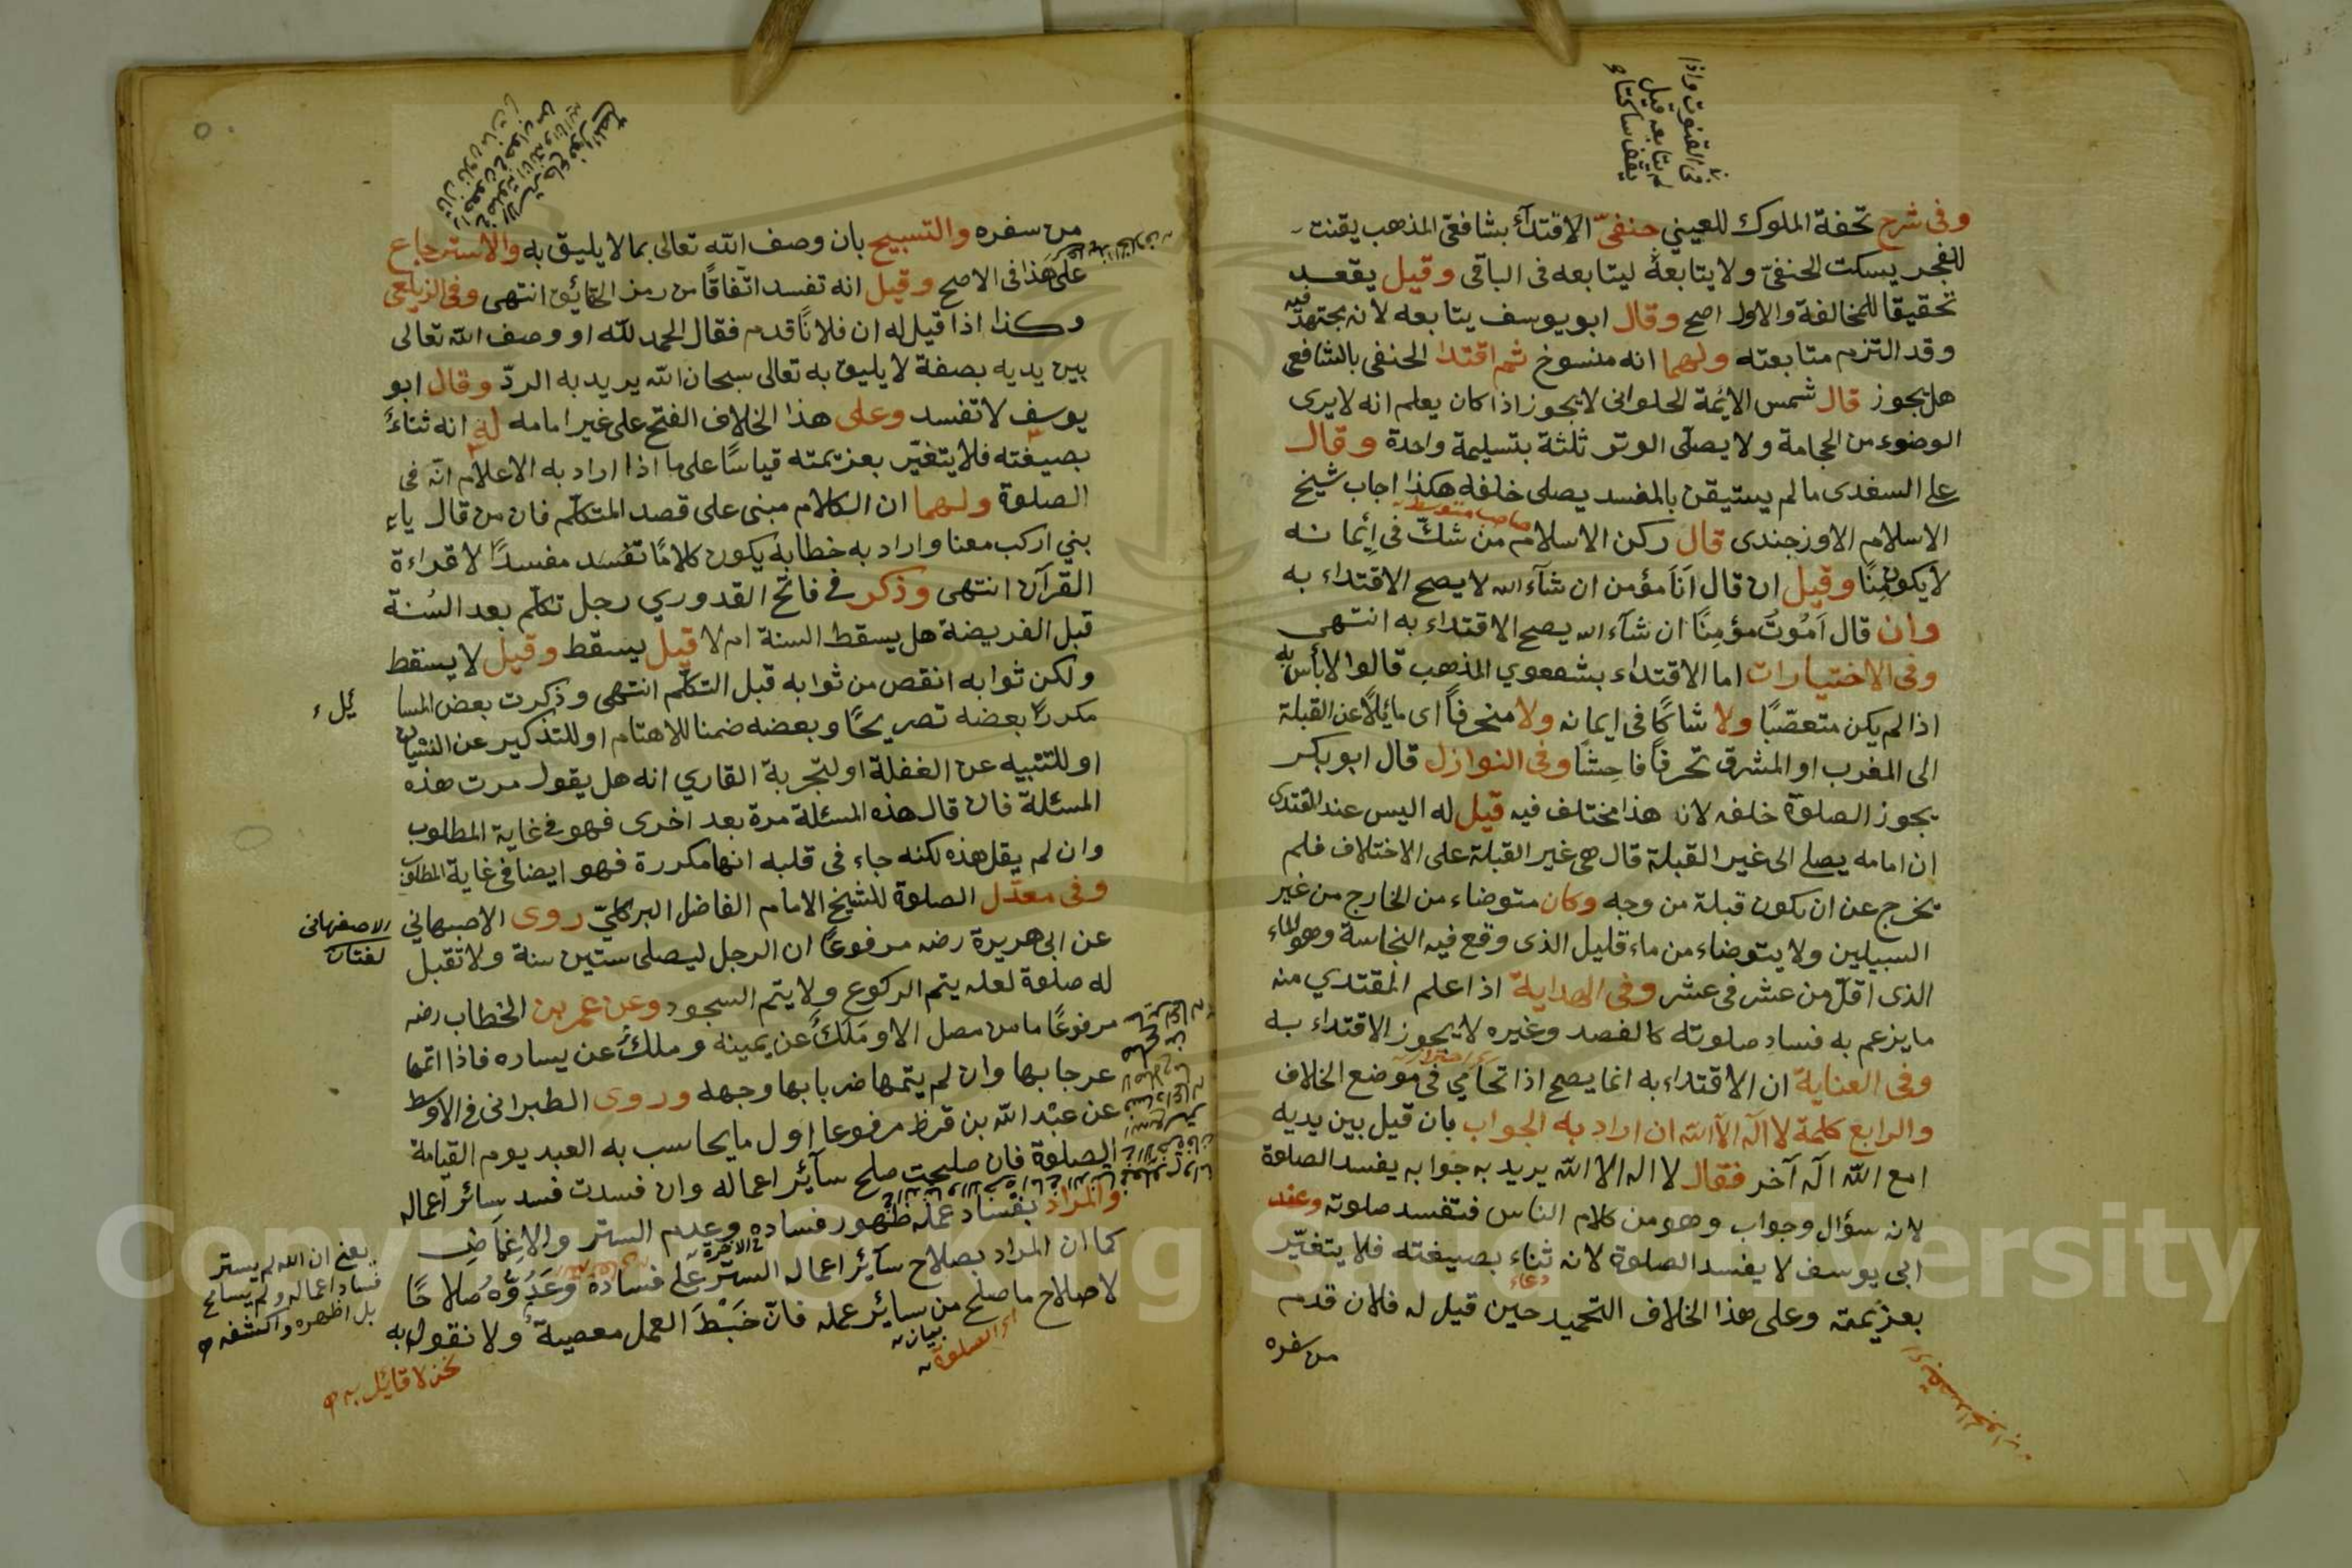 في القنوت واذا
لم يتابعه قيل
يقف ساكتا
وفى شرح تحفة الملوك للعيني حنفىّ الاقتدآء بشافعى المذهب يقنت
للفجر يسكت الحنفىّ ولا يتابعهُ ليتابعه فى الباقى وقيل يقعد
تحقيقا للمخالفة والاول اصح وقال ابو يوسف يتابعه لانه مجتهد فيه
وقد التزم متابعته ولهما انه منسوخ ثم اقتدا الحنفى بالشافعى
هل يجوز قال شمس الائمة الحلوانى لا يجوز اذا كان يعلم انه لا يرى
الوضوء من الحجامة ولا يصلّى الوتر ثلثة بتسليمة واحدة وقال
على السغدى ما لم يستيقن بالمفسد يصلى خلفه هكذا اجاب شيخ
الاسلام الاوزجندى قال ركن الاسلام من شكّ فى اِيمانه
لا يكون مؤمِنًا وقيل ان قال اَنَا مؤمن ان شآء الله لا يصح الاقتداء به
وان قال اَمُوتُ مؤمِنًا ان شآء الله يصح الاقتداء به انتهى
وفى الاختيارات اما الاقتداء بشفعوي المذهب قالوا لا بأس به
اذا لم يكن متعصّبًا ولا شاكًا فى ايمانه ولا منحرفاً اى مائِلًا عن القبلة
الى المغرب او المشرق تحرفًا فاحِشًا وفى النوازل قال ابو بكر
يجوز الصلوة خلفه لانه هذا مختلف فيه قيل له اليس عند المقتدى
ان امامه يصلى الى غير القبلة قال هى غير القبلة على الاختلاف فلم
يخرج عن ان يكون قبلة من وجه وكان متوضاء من الخارج من غير
السبيلين ولا يتوضاء من ماء قليل الذى وقع فيه النجاسة وهو الماء
الذى اقلّ من عشر فى عشر وفى الهداية اذا علم المقتدي منه
ما يزعم به فسادِ صلوته كالفصد وغيره لا يجوز الاقتداء به
وفى العناية ان الاقتداء به انما يصح اذا تحامى فى موضع الخلاف
والرابع كلمة لا اله الا الله ان اراد به الجواب بان قيل بين يديه
امع الله اله آخر فقال لا اله الا الله يريد به جوابه يفسد الصلوة
لانه سؤال وجواب وهو من كلام الناس فتفسد صلوته وعند
ابى يوسف لا يفسد الصلوة لانه ثناء بصيغته فلا يتغيّر
دعاء
بعزيمته وعلى هذا الخلاف التحميد حين قيل له فلان قدم
من سفره
من سفره والتسبيح بان وصف الله تعالى بما لا يليق به والاسترجاع
على هذا فى الاصح وقيل انه تفسد اتفاقًا من رمز الحقائق انتهى وفى الزيلعى
وكذا اذا قيل له ان فلانًا قدم فقال الحمد لله او وصف الله تعالى
بين يديه بصفة لا يليق به تعالى سبحان الله يريد به الردّ وقال ابو
يوسف لا تفسد وعلى هذا الخلاف الفتح على غير امامه له انه ثناءً
بصيغته فلا يتغيّر بعزيمته قياسًا على ما اذا اراد به الاعلام انّه فى
الصلوة ولهما ان الكلام مبنى على قصد المتكلّم فان من قال يا
بني اركب معنا واراد به خطابه يكون كلامًا تفسد مفسدًا لا قراءة
القرآن انتهى وذكر فى فاتح القدوري رجل تكلّم بعد السُنة
قبل الفريضة هل يسقط السنة ام لا قيل يسقط وقيل لا يسقط
ولكن ثوابه انقص من ثوابه قبل التكلّم انتهى وذكرت بعض المسا
ئيل
مكررًا بعضه تصريحًا وبعضه ضمنا للاهتمام او للتذكير عن النسيان
او للتنبيه عن الغفلة او لتجربة القاري انه هل يقول مرت هذه
المسئلة فان قال هذه المسئلة مرة بعد اخرى فهو فى غاية المطلوب
وان لم يقل هذه لكنه جاء فى قلبه انها مكررة فهو ايضا فى غاية المطلوب
وفى معدّل الصلوة للشيخ الامام الفاضل البركليّ روى الاصبهاني
الاصفهانى
لغتان
عن ابى هريرة رضه مرفوعًا ان الرجل ليصلى ستين سنة ولا تقبل
له صلوة لعله يتم الركوع ولا يتم السجود وعن عمر بن الخطاب رضه
مرفوعًا ما من مصل الا و مَلَكٌ عن يمينه وملكٌ عن يساره فاذا اتمها
عرجا بها وان لم يتمها ضربا بها وجهه وروى الطبرانى فى الاوسط
عن عبْد الله بن قرظ مرفوعا اول ما يحاسب به العبد يوم القيامة
الصلوة فان صلحت صلح سآئر اعماله وان فسدت فسد سائر اعماله
والمراد بفساد عمله ظهور فساده وعدم الستر والاِغمَاضِ
فى الاخرة
كما ان المراد بصلاح سآئر اعماله الستر على فساده وعَدُوَّهُ صلاحًا
لا صلاح ما صلح من سائر عمله فانّ خَبْطَ العمل معصية ولا نقول به
يعنى ان الله لم يستر
فساد اعماله ولم يسامح
بل اظهره واكشفه
بيان
اى الصلوة
نحن لا قائل به
Copyright © King Saud University